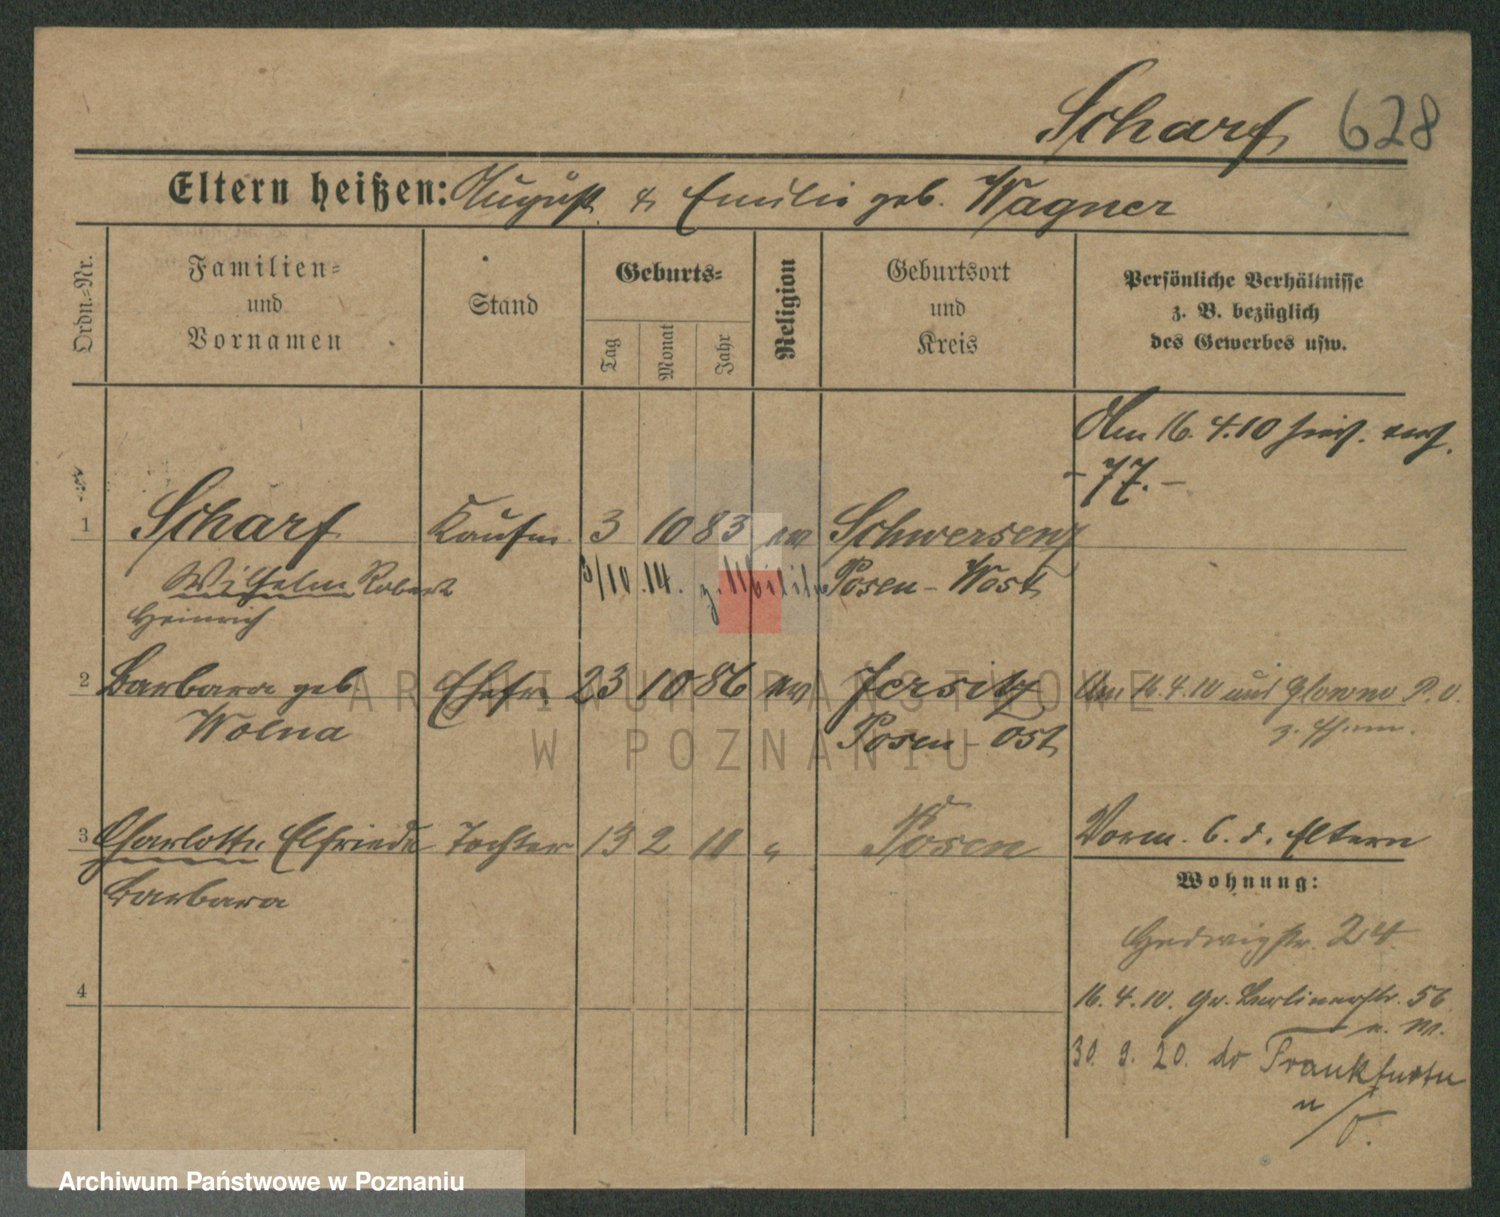 Scharf 628
Eltern heißen: August & Emilie geb. Wagner
Ordn.-Nr.
Familien-
und
Vornamen
Stand
Geburts-
Tag
Monat
Jahr
Religion
Geburtsort
und
Kreis
Persönliche Verhältnisse
z. B. bezüglich
des Gewerbes usw.
Am 16. 4. 10
- 77. -
1 Scharf Kaufm 3 10 83 ev Schwersenz
Wilhelm Robert 3/10. 14. z. Posen-West
Heinrich
2 Barbara geb Ehefr. 23 10 86 ev Jersitz Am 16. 4. 10 aus P. O.
Wolna Posen-Ost
3 Charlotte Elfriede Tochter 13 2 10 " Posen Vorm. b. d. Eltern
Barbara
Wohnung:
Hedwigstr. 24
4
16. 4. 10. Gr. Berlinerstr. 56
30. 9. 20. Frankfurt
/O.
ARCHIWUM PAŃSTWOWE
W POZNANIU
Archiwum Państwowe w Poznaniu